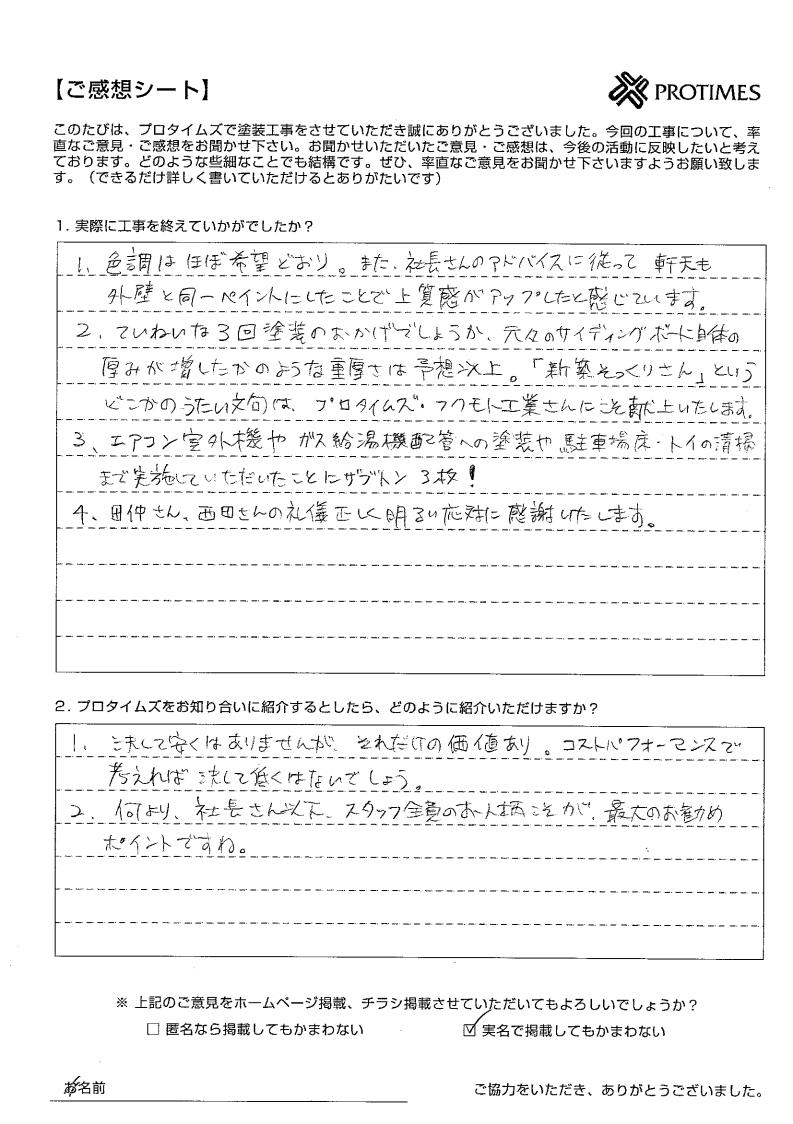 【ご感想シート】
PROTIMES
このたびは、プロタイムズで塗装工事をさせていただき誠にありがとうございました。今回の工事について、率
直なご意見・ご感想をお聞かせ下さい。お聞かせいただいたご意見・ご感想は、今後の活動に反映したいと考え
ております。どのような些細なことでも結構です。ぜひ、率直なご意見をお聞かせ下さいますようお願い致しま
す。（できるだけ詳しく書いていただけるとありがたいです）
1. 実際に工事を終えていかがでしたか？
1、色調はほぼ希望どおり。また、社長さんのアドバイスに従って 軒天も
外壁と同一ペイントにしたことで上質感がアップしたと感じています。
2、ていねいな3回塗装のおかげでしょうか、元々のサイディングボード自体の
厚みが増したかのような重厚さは予想以上。「新築そっくりさん」という
どこかのうたい文句は、プロタイムズ・フクモト工業さんにこそ献上いたします。
3、エアコン室外機や ガス給湯機配管への塗装や 駐車場床・トイの清掃
まで実施していただいたことにザブトン 3枚！
4、田仲さん、西田さんの礼儀正しく明るい応対に感謝いたします。
2. プロタイムズをお知り合いに紹介するとしたら、どのように紹介いただけますか？
1、決して安くはありませんが、それだけの価値あり。コストパフォーマンスで
考えれば 決して低くはないでしょう。
2、何より、社長さん以下、スタッフ全員のお人柄こそが、最大のお勧め
ポイントですね。
※ 上記のご意見をホームページ掲載、チラシ掲載させていただいてもよろしいでしょうか？
□ 匿名なら掲載してもかまわない ☑ 実名で掲載してもかまわない
お名前 ご協力をいただき、ありがとうございました。